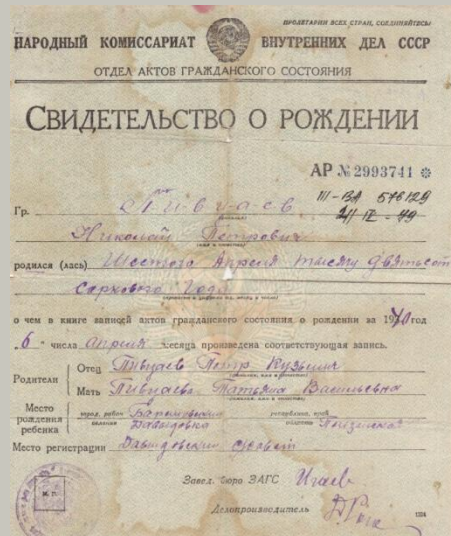 ПРОЛЕТАРИИ ВСЕХ СТРАН, СОЕДИНЯЙТЕСЬ!
НАРОДНЫЙ КОМИССАРИАТ ВНУТРЕННИХ ДЕЛ СССР
ОТДЕЛ АКТОВ ГРАЖДАНСКОГО СОСТОЯНИЯ
СВИДЕТЕЛЬСТВО О РОЖДЕНИИ
АР № 2993741
III-ВА 576129
Гр.
Николай Петрович
родился (лась) Шестого Апреля тысячу девятьсот
сорокового года
о чем в книге записей актов гражданского состояния о рождении за 1940 год
6 числа апреля месяца произведена соответствующая запись.
Родители
Отец Пивцаев Петр Кузьмич
Мать Пивцаева Татьяна Васильевна
Место рождения ребенка
город, район
селение Давыдовка
республика, край
область Пензенская
Место регистрации Давыдовский с/совет
Завед. бюро ЗАГС
Делопроизводитель
М. П.